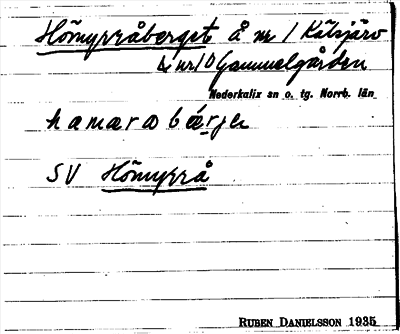 Hömyrråberget å nr 1 Kälsjärv
å nr 10 Gammelgården
Nederkalix sn o. tg. Norrb. län
hamarabärje
SV Hömyrrå
RUBEN DANIELSSON 1935